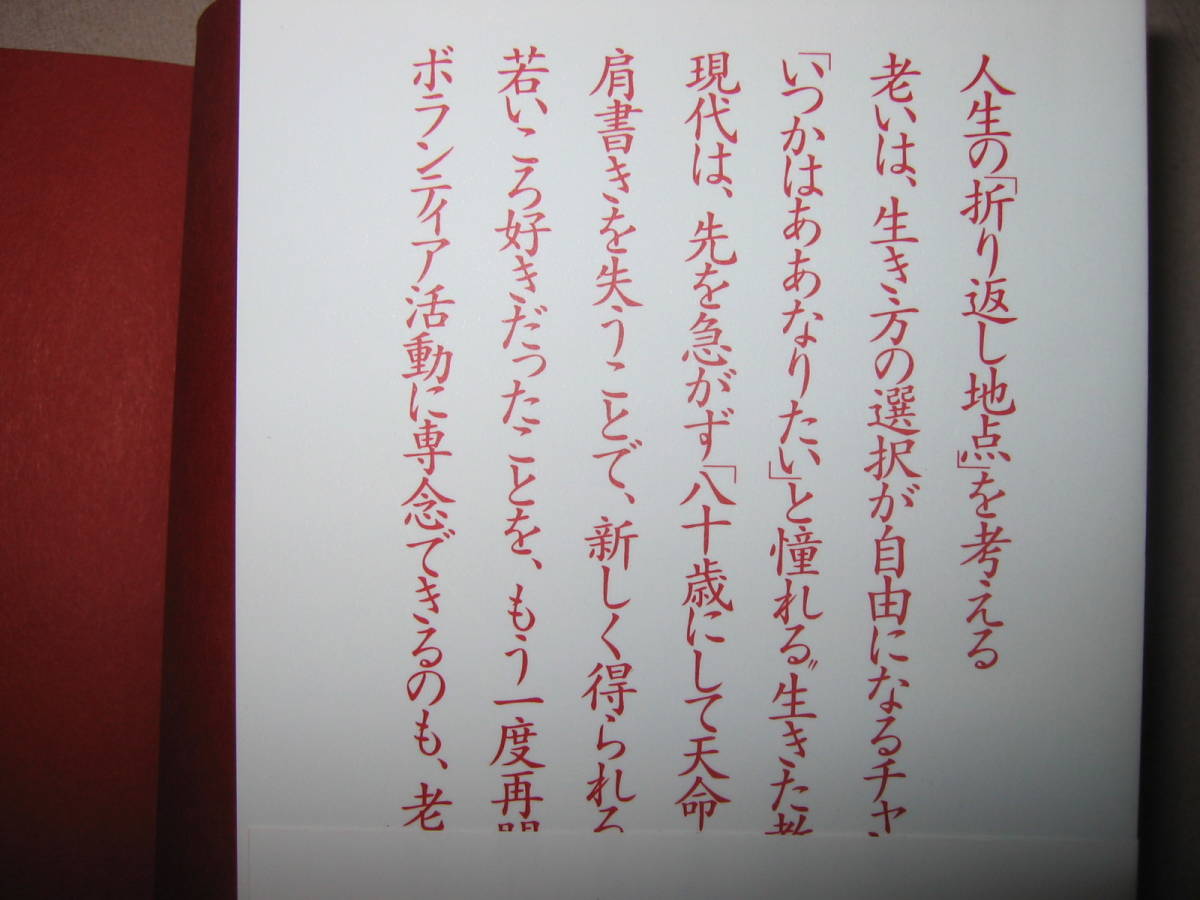 人生の「折り返し地点」を考える
老いは、生き方の選択が自由になるチャ
「いつかはああなりたい」と憧れる〝生きた
現代は、先を急がず「八十歳にして天命
肩書きを失うことで、新しく得られる
若いころ好きだったことを、もう一度再
ボランティア活動に専念できるのも、老